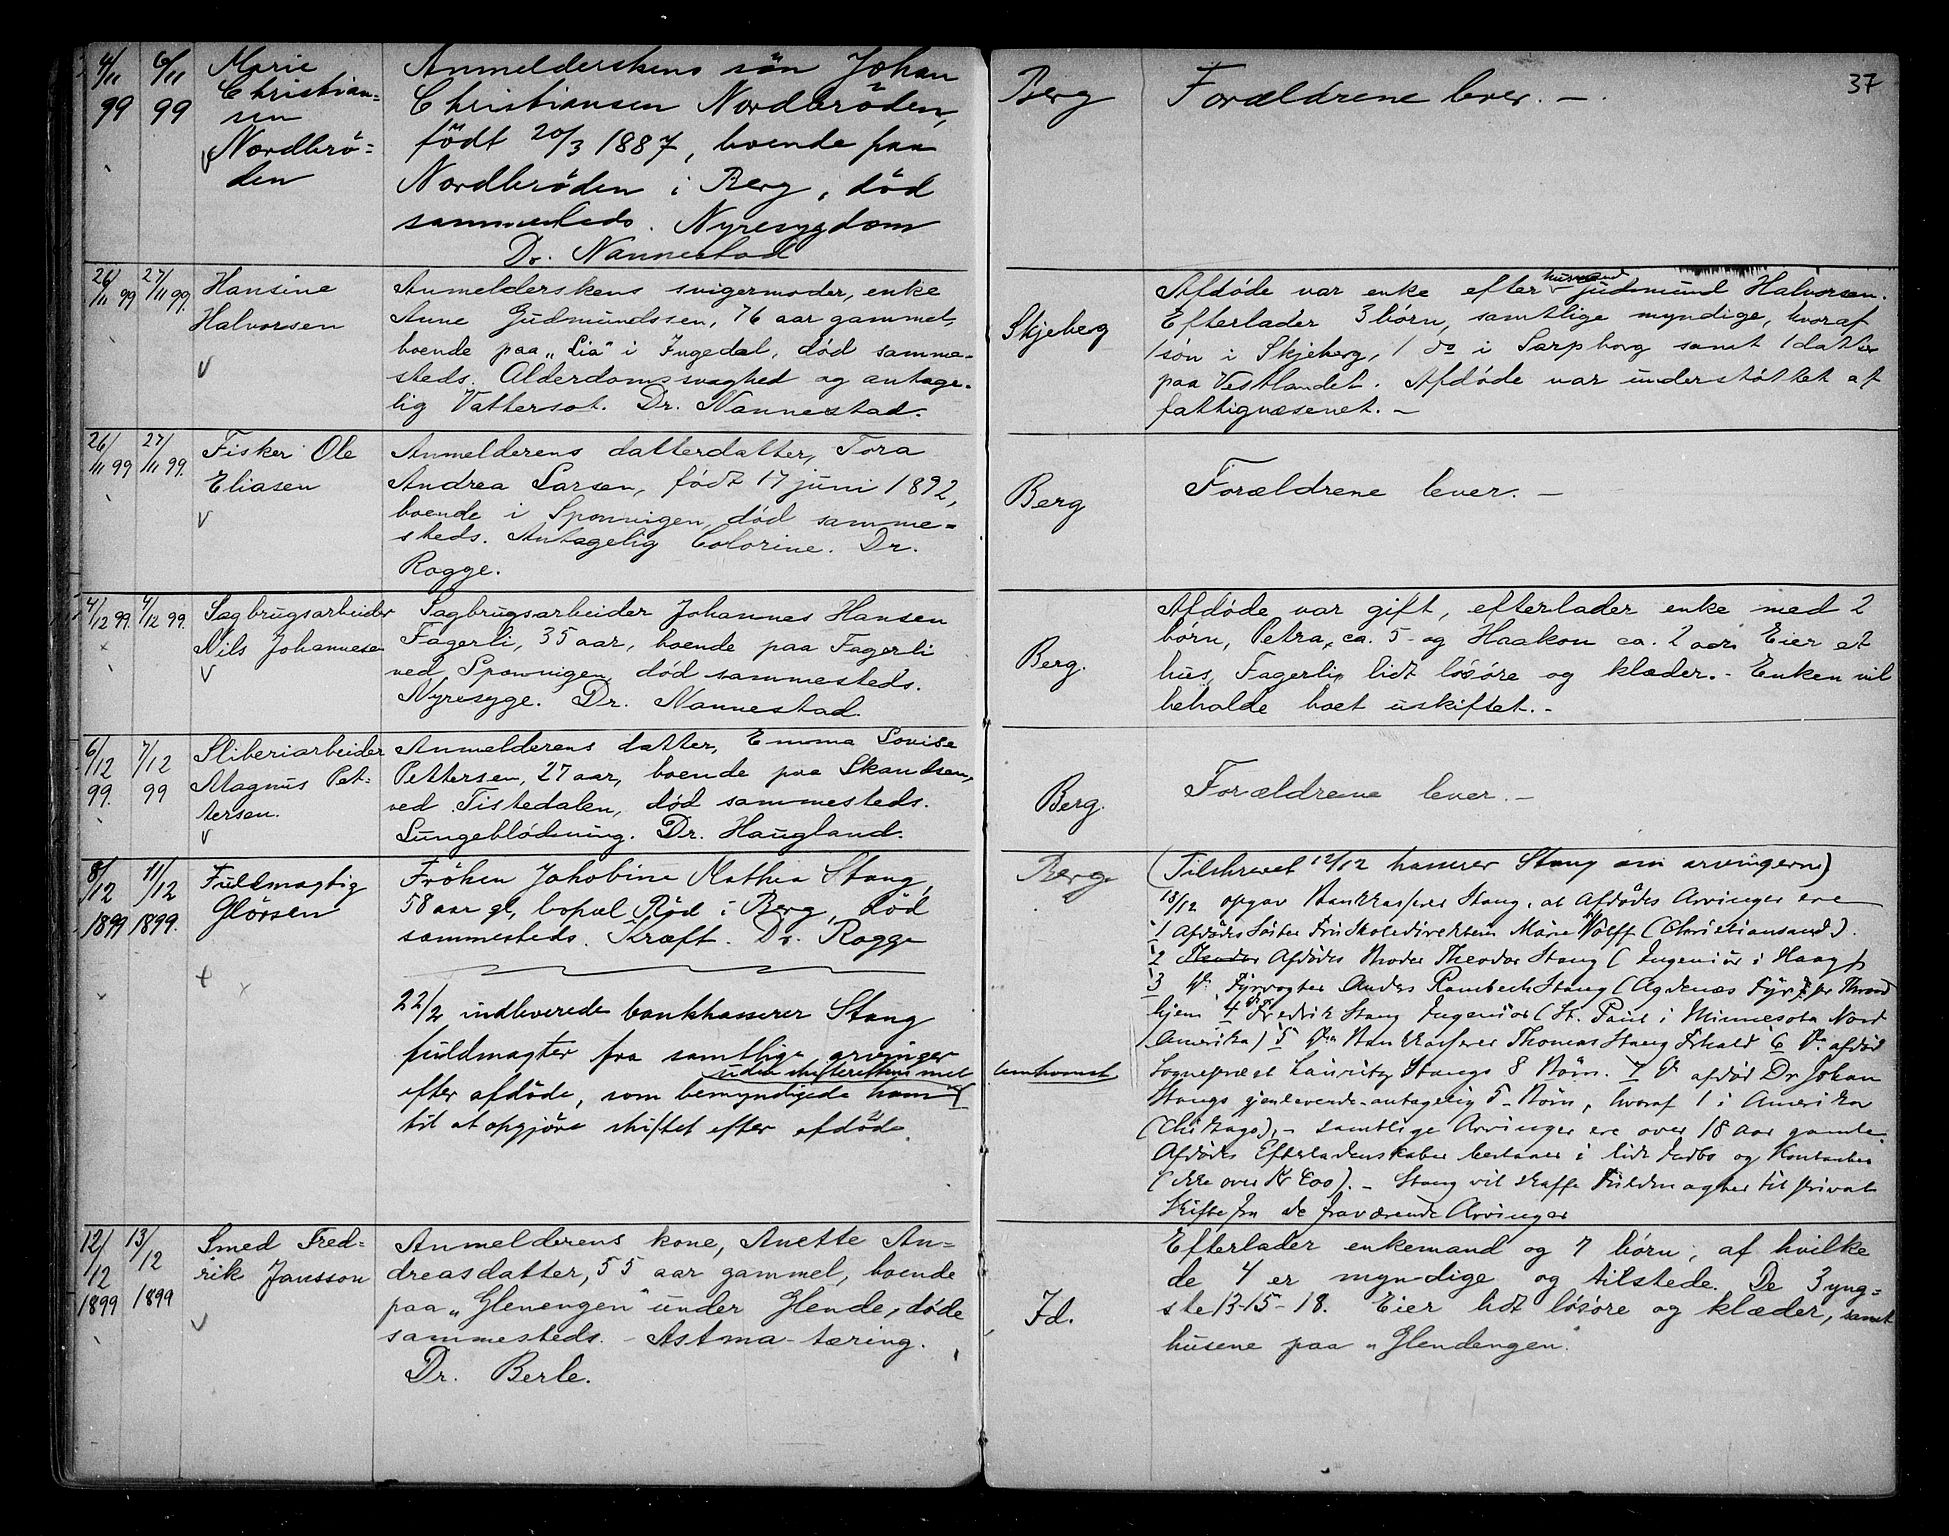 37
4/11 99
6/11 99
Marie
Christian=
sen
Nordbrö=
den
Anmelderskens sön Johan
Christiansen Nordbröden,
födt 20/3 1887, boende paa
Nordbröden i Berg, död
sammesteds. Nyresygdom
Dr. Nannestad
Berg
Forældrene lever. –
26/11 99
27/11 99.
Hansine
Halvorsen
Anmelderskens svigermoder, enke
Anne Gudmundssen, 76 aar gammel,
boende paa „Lia" i Ingedal, död samme-
steds. Alderdomssvaghed og antage-
lig Vattersot. Dr. Nannestad.
Skjeberg
husmand
Afdöde var enke efter Gudmund Halvorsen.
Efterlader 3 börn, samtlige myndige, hvoraf
1 sön i Skjeberg, 1 do i Sarpborg samt 1 datter
paa Vestlandet. Afdöde var understöttet af
fattigvæsenet. –
26/11 99
27/11 99.
Fisker Ole
Eliasen
Anmelderens datterdatter, Tora
Andrea Larsen, födt 17 juni 1892,
boende i Sponvigen, död samme=
steds. Antagelig Colorine. Dr.
Rogge.
Berg
Forældrene lever. –
4/12 99.
4/12 99.
Sagbrugsarbeider
Nils Johannesen
Sagbrugsarbeider Johannes Hansen
Fagerli, 35 aar, boende paa Fagerli
ved Sponvigen, död sammesteds.
Nyresyge. Dr. Nannestad.
Berg.
Afdöde var gift, efterlader enke med 2
börn, Petra, ca. 5- og Haakon ca. 2 aar. Eier et
hus, Fagerli, lidt lösöre og klæder. - Enken vil
beholde boet uskiftet. -
6/12 99.
7/12 99
Sliberiarbeider
Magnus Pet-
tersen.
Anmelderens datter, Emma Lovise
Pettersen, 27 aar, boende paa Skandsen,
ved Tistedalen, död sammesteds.
Lungeblödning. Dr. Haugland.
Berg.
Forældrene lever. –
8/12 1899
11/12 1899.
Fuldmægtig
Glörsen
Fröken Jakobine Mathea Stang,
58 aar gl, bopæl Röd i Berg, död
sammesteds. Kræft. Dr. Rogge
22/2 indleverede bankkasserer Stang
fuldmagter fra samtlige arvinger
uden skifterettens mel
efter afdöde, som bemyndigede ham
til at opgjöre skiftet efter afdöde.
Berg.
(Tilskrevet 12/12 kasserer Stang om arvingerne)
18/12 opgav Bankkasserer Stang, at Afdödes Arvinger ere
1 Afdödes Söster Fru Skoledirektör Marie Wolff (Christiansand).
2 Theodor Afdödes Broder Theodor Stang (Ingeniör i Haag)
3 Do Fyrvogter Anders Rambech Stang (Agdenæs Fyr pr Thrond
hjem 4 Do Fredrik Stang Ingeniör (St. Paul i Minnesota Nord
Amerika) 5 Do Bankkasserer Thomas Stang Frhald 6 Do afdöd
Sognepræst Lauritz Stangs 8 Börn. 7 Do afdöd Dr Johan
Stangs gjenlevende antagelig 5 Börn, hvoraf 1 i Amerika
(Chikago), – samtlige Arvinger ere over 18 Aar gamle.
Afdödes Efterladenskaber bestaaer i lidt Indbo og Kontanter
(ikke over Kr 400). – Stang vil skaffe Fuldmagter til privat
Skifte fra de fraværende Arvinger
12/12 1899
13/12 1899
Smed Fred-
rik Jansson
Anmelderens kone, Anette An=
dreasdatter, 55 aar gammel, boende
paa „Glenengen" under Glende, döde
sammesteds. - Astma-tæring.
Dr. Berle.
Id.
Efterlader enkemand og 7 börn, af hvilke
de 4 er myndige og tilstede. De 3 yng=
ste 13-15-18. Eier lidt lösöre og klæder, samt
husene paa „Glendengen".